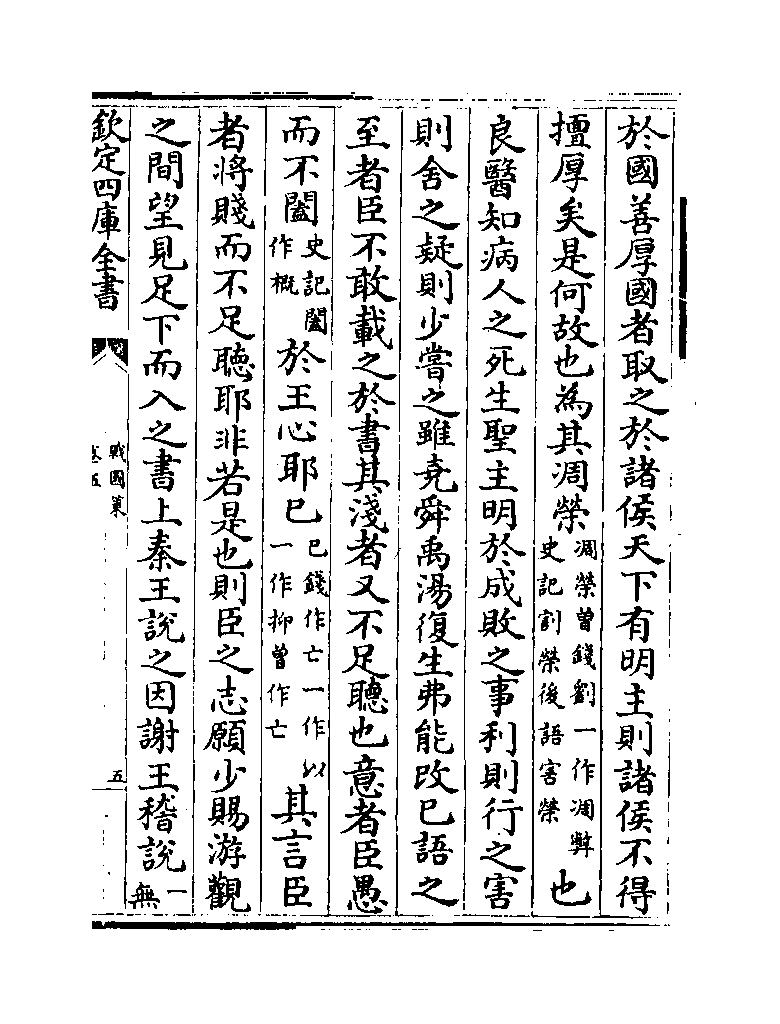 於國善厚國者取之於諸侯天下有明主則諸侯不得
擅厚矣是何故也為其凋榮凋榮曾錢劉一作凋弊史記割榮後語害榮也
良醫知病人之死生聖主明於成敗之事利則行之害
則舍之疑則少嘗之雖堯舜禹湯復生弗能改已語之
至者臣不敢載之於書其淺者又不足聽也意者臣愚
而不闔史記闔作概於王心耶已已錢作亡一作以一作抑曾作亡其言臣
者將賤而不足聽耶非若是也則臣之志願少賜游觀
之間望見足下而入之書上秦王說之因謝王稽說一無
欽定四庫全書
戰國策
卷五
五